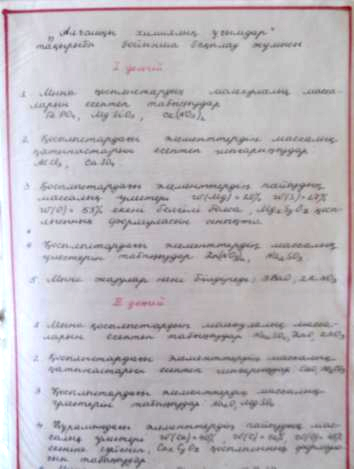 "Алғашқы химиялық ұғымдар"
тақырыбы бойынша бақылау жұмысы
I деңгей
1. Мына қосылыстардың молекулалық масса-
ларын есептеп табыңыздар
MgSiO₃,
2. Қосылыстардағы элементтердің массалық
қатынастарын есептеп шығарыңыздар
AlCl₃,
3. Қосылыстардағы элементтердің пайыздық
массалық үлестері W(Mg) = 20% W(S) = 27%
W(O) = 53% екені белгілі болса, MgxSyOz қосы-
лысының формуласын анықта
4. Қосылыстардағы элементтердің массалық
үлестерін табыңыздар Zn(NO₃)₂,
5. Мына жазулар нені білдіреді:
II деңгей
1. Мына қосылыстардың молекулалық масса-
ларын есептеп табыңыздар
2. Қосылыстардағы элементтердің массалық
қатынастарын есептеп шығарыңыздар
3. Қосылыстардағы элементтердің массалық
үлестерін табыңыздар
4. Құрамындағы элементтердің пайыздық мас-
салық үлестері W(Ca) = 40%, W(O) = 48%
есебіне сүйеніп, қосылысының формула-
сын табыңыздар